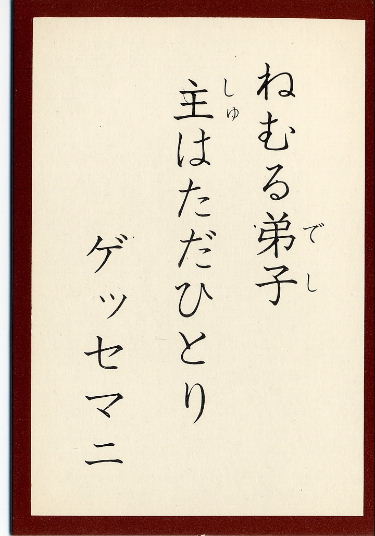 ねむる弟子
主はただひとり
ゲッセマニ
でし
しゅ